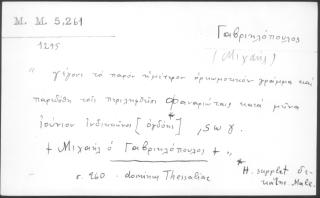 M. M. 5,261
Γαβριηλόπουλος
(Μιχαήλ)
1295
" γέγονε τὸ παρὸν ἡμέτερον ὁρκωμοτικὸν γράμμα καὶ
παρεδόθη τοῖς περιληφθεῖσι Φαναριώταις κατὰ μῆνα
Ἰούνιον Ἰνδικτιῶνος [ὀγδόης]*, ςωγ.
+ Μιχαὴλ ὁ Γαβριηλόπουλος + "
* H. supplet δε-
κάτης. Male.
r. 260 - dominus Thessaliae